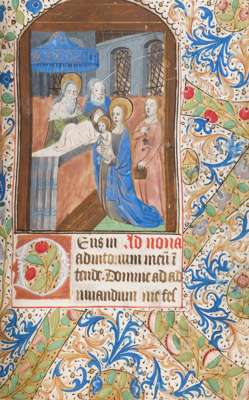 Deus in Ad nona
adiutorium meū ī
tende. Domine ad ad
iuuandum me fes